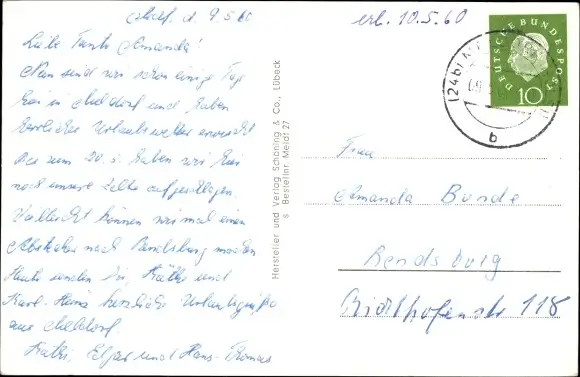 Meldf. d. 9.5.60
erh. 10.5.60
Liebe Tante Amanda!
Nun sind wir schon einige Tage
hier in Meldorf und haben
herrliches Urlaubswetter erwischt
Bis zum 20.5. haben wir hier
noch unsere Zelte aufgeschlagen
Vielleicht können wir mal einen
Abstecher nach Rendsburg machen
Heute senden Dir, Käthe und
Karl-Heinz herzliche Urlaubsgrüße
aus Meldorf
Käthe, Edgar und Hans-Thomas
Hersteller und Verlag Schöning & Co., Lübeck
s Bestellnr Meldf 27
DEUTSCHE BUNDESPOST
10
(24b)
b
Frau
Amanda Bonde
Rendsburg
Richthofenstr 118